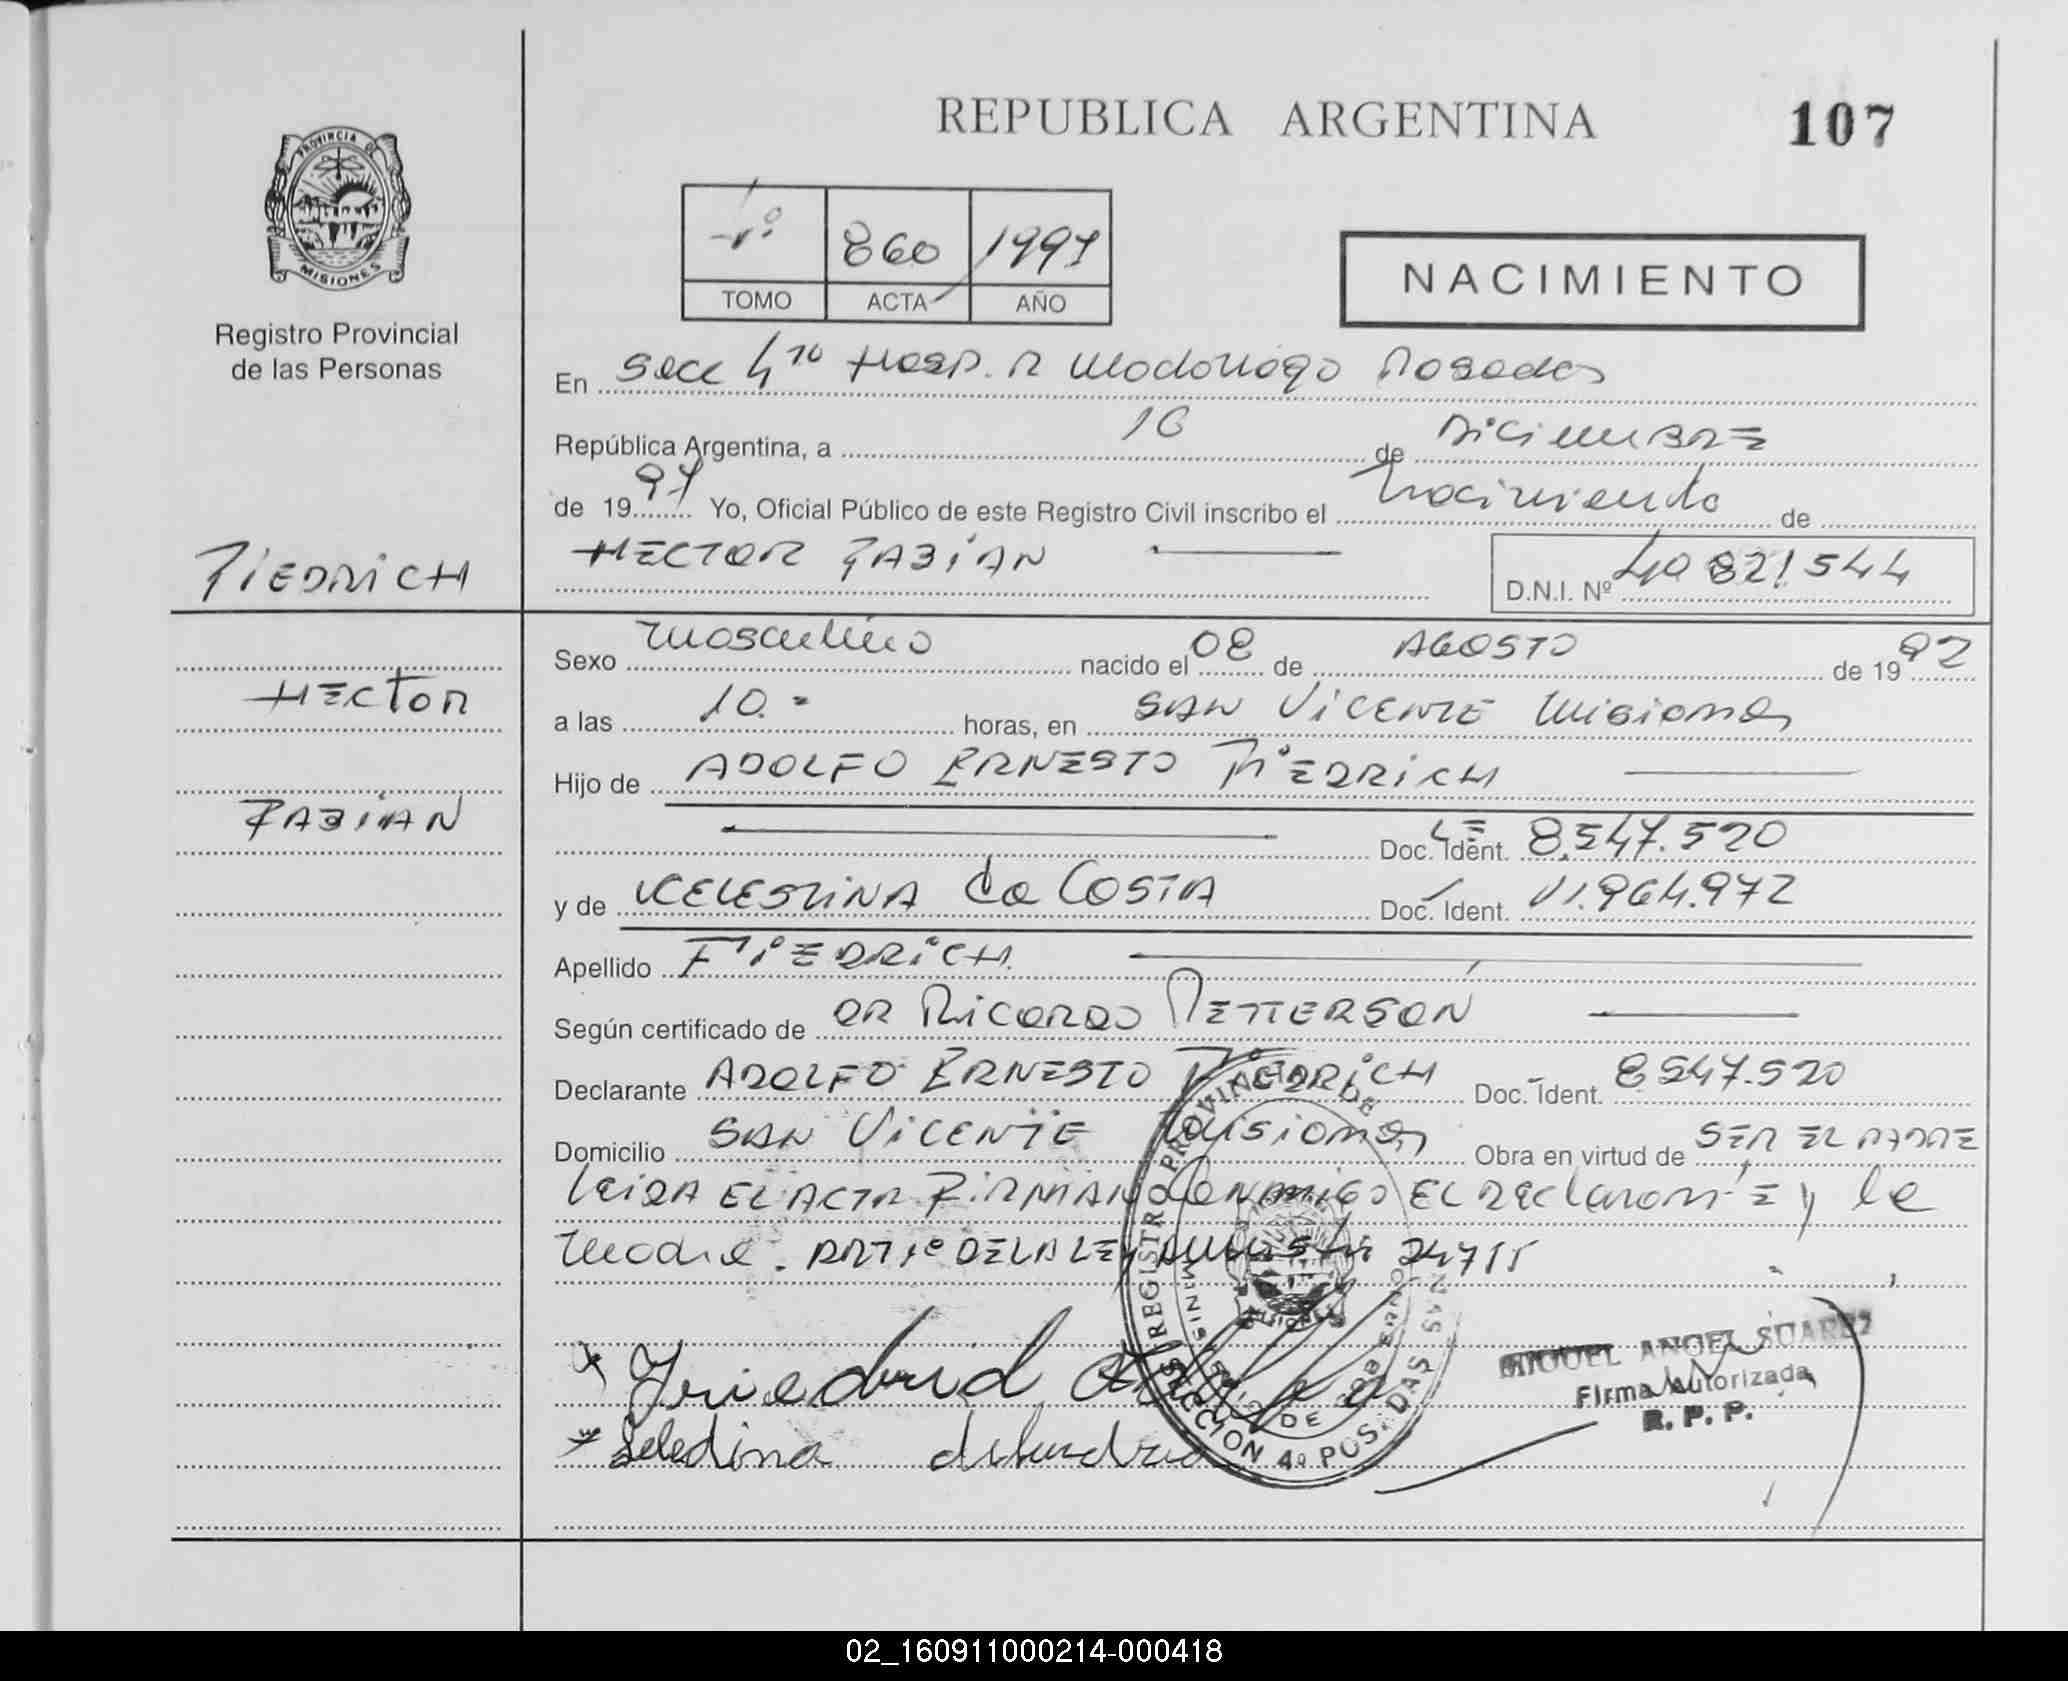 REPUBLICA ARGENTINA
107
PROVINCIA DE
MISIONES
Registro Provincial
de las Personas
860 1997
TOMO ACTA AÑO
NACIMIENTO
En Secc 4ta Hosp. R Madariaga Posadas
República Argentina, a 16 de Diciembre
de 1997 Yo, Oficial Público de este Registro Civil inscribo el Nacimiento de
HECTOR FABIAN
D.N.I. Nº 40821544
FIEDRICH
HECTOR
FABIAN
Sexo Masculino nacido el 08 de AGOSTO de 1992
a las 10.- horas, en SAN VICENTE Misiones
Hijo de ADOLFO ERNESTO FIEDRICH
Doc. Ident. LE 8.547.520
y de CELESTINA da COSTA Doc. Ident. 11.964.972
Apellido FIEDRICH
Según certificado de DR Ricardo PETTERSON
Declarante ADOLFO ERNESTO FIEDRICH Doc. Ident. 8547.520
Domicilio SAN VICENTE Misiones Obra en virtud de SER EL PADRE
Leida EL ACTA FIRMAN CONMIGO EL DEClarante y la
madre. ART 1º DE LA LEY Amnistia 24755
REGISTRO PROVINCIAL DE LAS
MINISTERIO DE GOBIERNO
MISIONES
SECCION 4º POSADAS
MIGUEL ANGEL SUAREZ
Firma Autorizada
R. P. P.
02_160911000214-000418